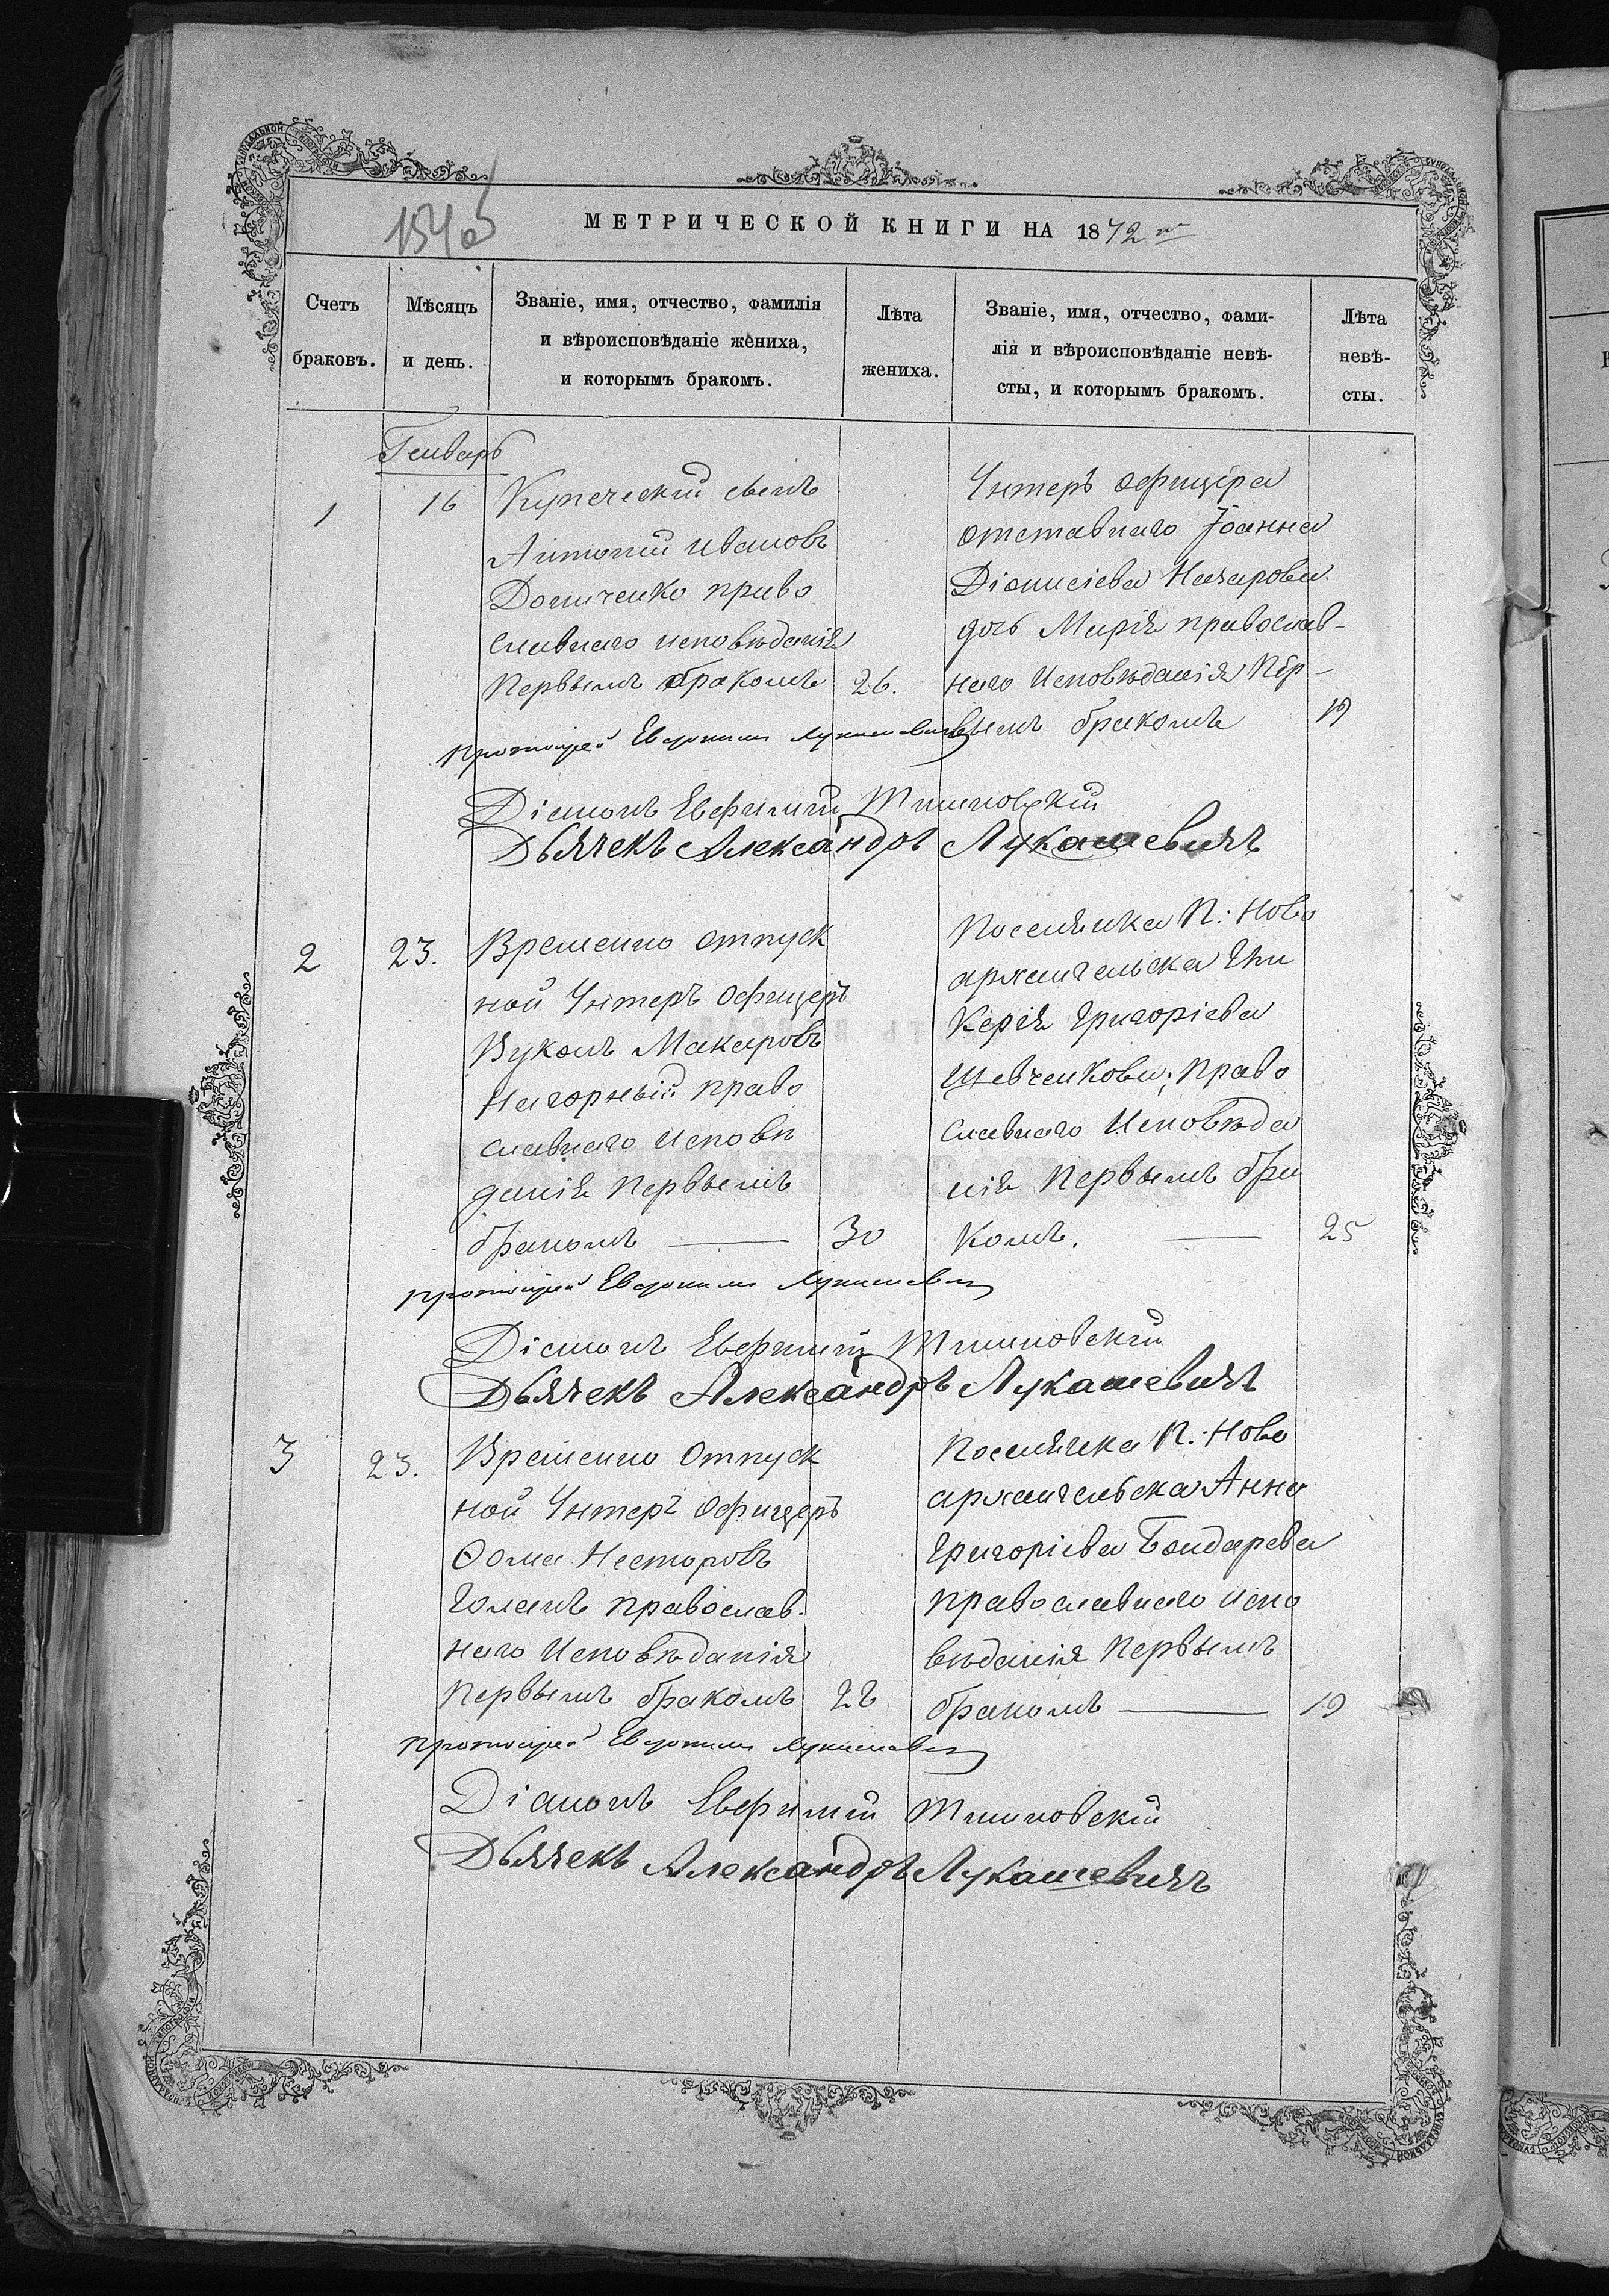 МЕТРИЧЕСКОЙ КНИГИ НА 1872
Счетъ браковъ.
Мѣсяцъ и день.
Званіе, имя, отчество, фамилія
и вѣроисповѣданіе жениха,
и которымъ бракомъ.
Лѣта жениха.
Званіе, имя, отчество, фами-
лія и вѣроисповѣданіе невѣ-
сты, и которымъ бракомъ.
Лѣта невѣ-
сты.
Генварь
1
16
Купеческій сынъ
Антоній Ивановъ
Доличенко право
славнаго исповѣданія
первымъ бракомъ
26.
Унтеръ офицера
отставнаго Іоанна
Діонисіева Назарова
дочь Марія православ-
наго Исповѣданія пер-
вымъ бракомъ
19
Протоіерей Евдокимъ Лукашевичъ
Діаконъ Евфимій
Дьячекъ Александръ Лукашевичъ
2
23.
Временно отпуск
ной Унтеръ офицеръ
Вуколъ Макаровъ
Нагорный право
славнаго исповѣ
данія первымъ
бракомъ
30
Поселянка П: Ново
архангельска Гли
керія Григоріева
Шевченкова; право
славнаго Исповѣда
нія первымъ бра
комъ.
25
Протоіерей Евдокимъ Лукашевичъ
Діаконъ Евфимій
Дьячекъ Александръ Лукашевичъ
3
23.
Временно отпуск
ной Унтеръ офицеръ
Ѳома Несторовъ
православ.
наго Исповѣданія
первымъ бракомъ
Поселянка П: Ново
архангельска Анна
Григоріева Бондарева
православнаго испо
вѣданія первымъ
бракомъ
19
Протоіерей Евдокимъ Лукашевичъ
Діаконъ Евфимій
Дьячекъ Александръ Лукашевичъ